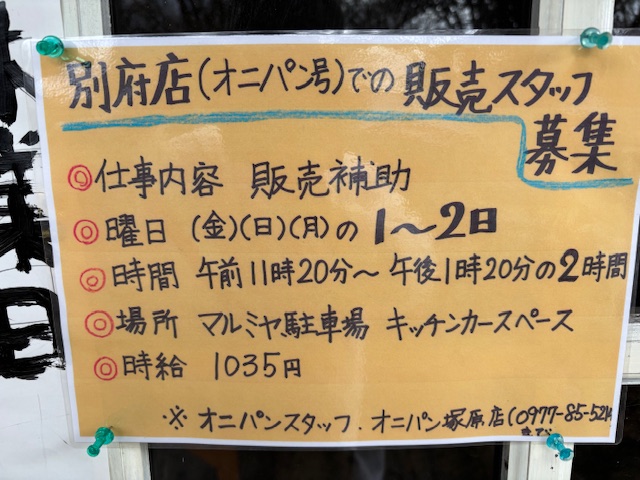 別府店(オニパン号)での 販売スタッフ
募集
◎仕事内容 販売補助
◎曜日 (金)(日)(月)の 1〜2日
◎時間 午前11時20分〜午後1時20分の2時間
◎場所 マルミヤ駐車場 キッチンカースペース
◎時給 1035円
※ オニパンスタッフ.オニパン塚原店(0977-85-52
まで